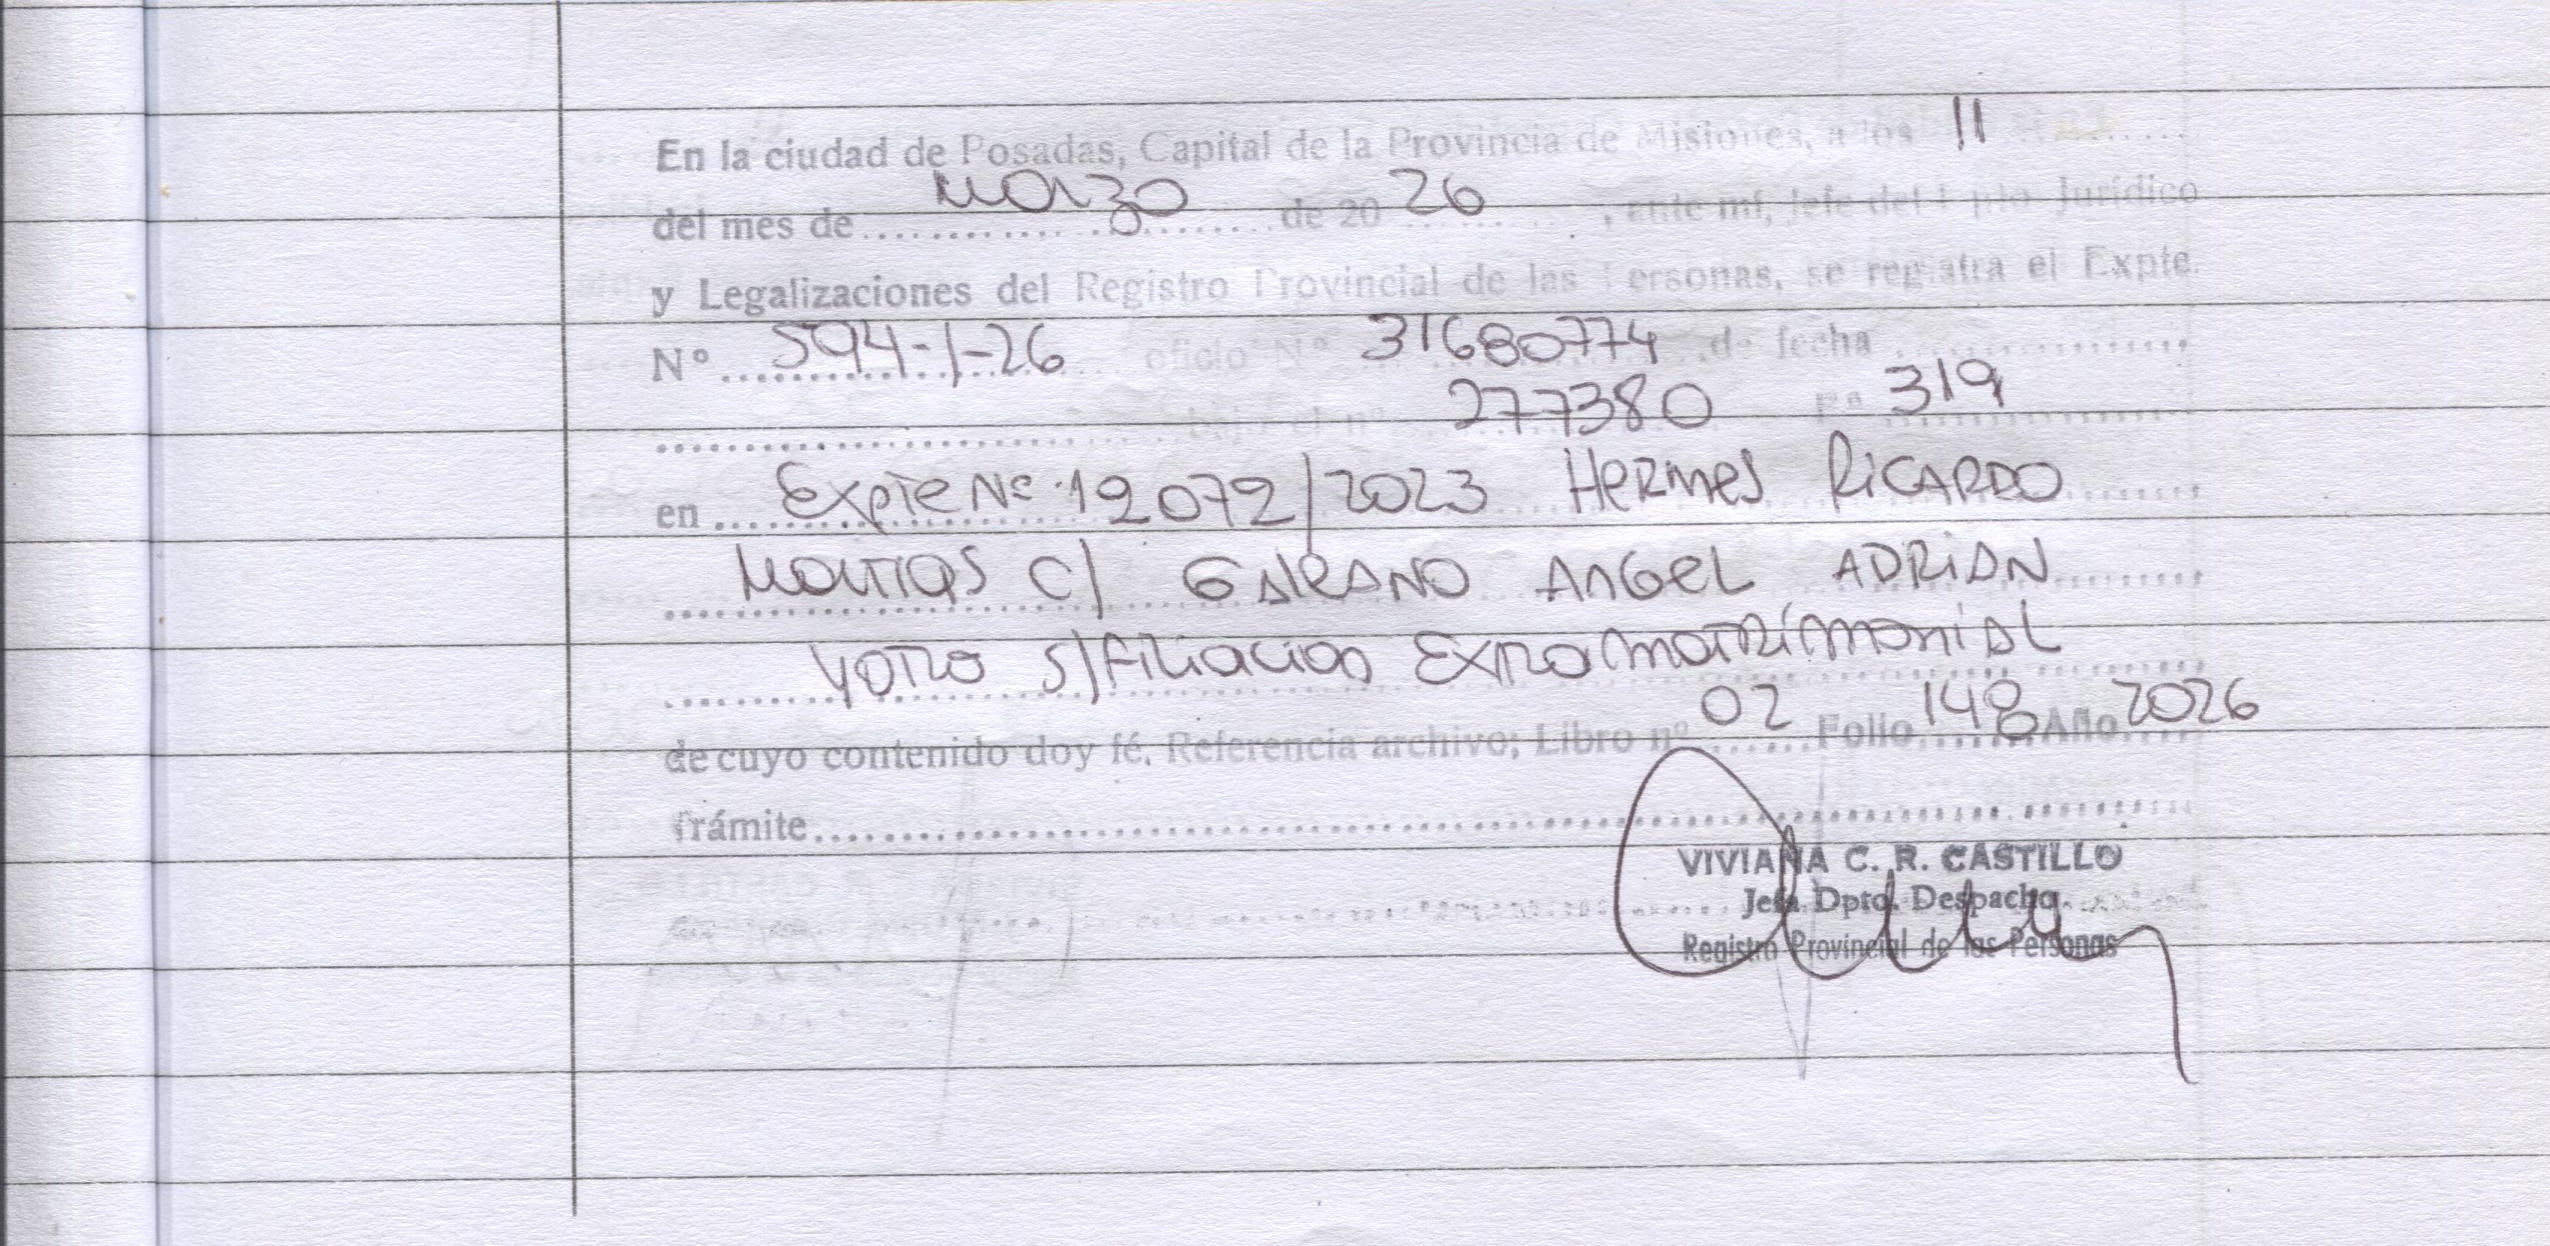 En la ciudad de Posadas, Capital de la Provincia de Misiones, a los 11
del mes de marzo de 20 26, ante mí, Jefe del Dpto Jurídico
y Legalizaciones del Registro Provincial de las Personas, se registra el Expte.
Nº 594-1-26 oficio Nº 31680774 de fecha
bajo el nº 277380 Fº 319
en Expte Nº 12072/2023 HERMES RICARDO
Matias C/ GALEANO ANGEL ADRIAN
Y OTRO S/ Filiacion Extramatrimonial
de cuyo contenido doy fé. Referencia archivo; Libro nº 02 Folio 148 Año 2026
Trámite
VIVIANA C. R. CASTILLO
Jefa Dpto. Despacho
Registro Provincial de las Personas